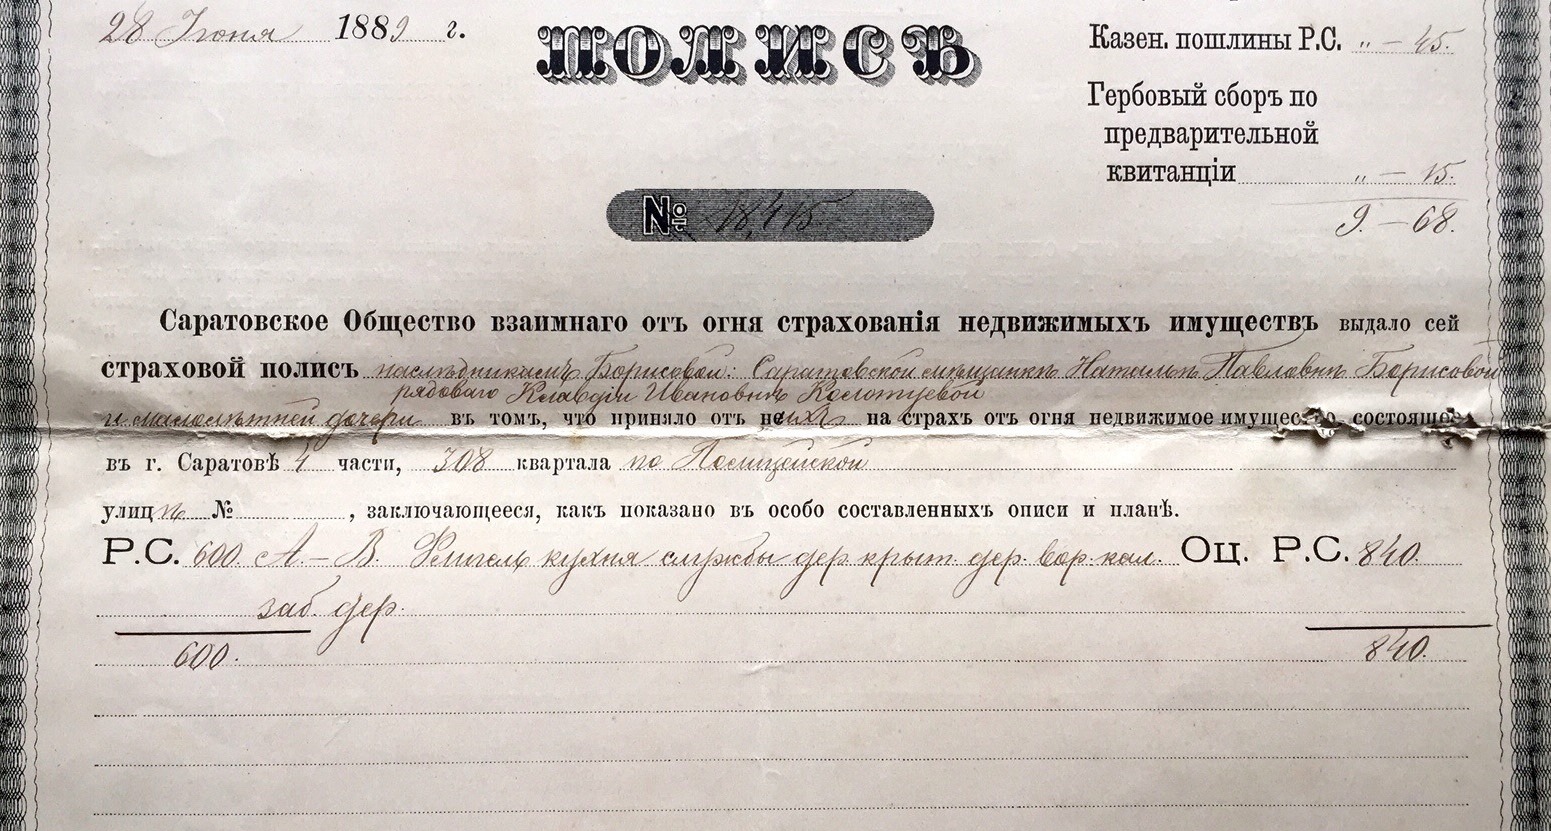 28 Іюня 1889 г.
ПОЛИСЪ
Казен. пошлины Р.С. „ — 45.
Гербовый сборъ по
предварительной
квитанціи „ — 15.
9. — 68.
№ 18,415
Саратовское Общество взаимнаго отъ огня страхованія недвижимыхъ имуществъ выдало сей
страховой полисъ наслѣдникамъ Борисовой: Саратовской мѣщанкѣ Натальѣ Павловнѣ Борисовой
рядоваго Клавдіи Ивановнѣ
и малолѣтней дочери въ томъ, что приняло отъ нихъ на страхъ отъ огня недвижимое имущество, состоящее
въ г. Саратовѣ 4 части, 308 квартала по Полицейской
улицѣ № , заключающееся, какъ показано въ особо составленныхъ описи и планѣ.
Р.С. 600 А — В. Флигель кухня службы дер. крыт. дер. вор. кал. Оц. Р.С. 840.
заб. дер.
600. 840.